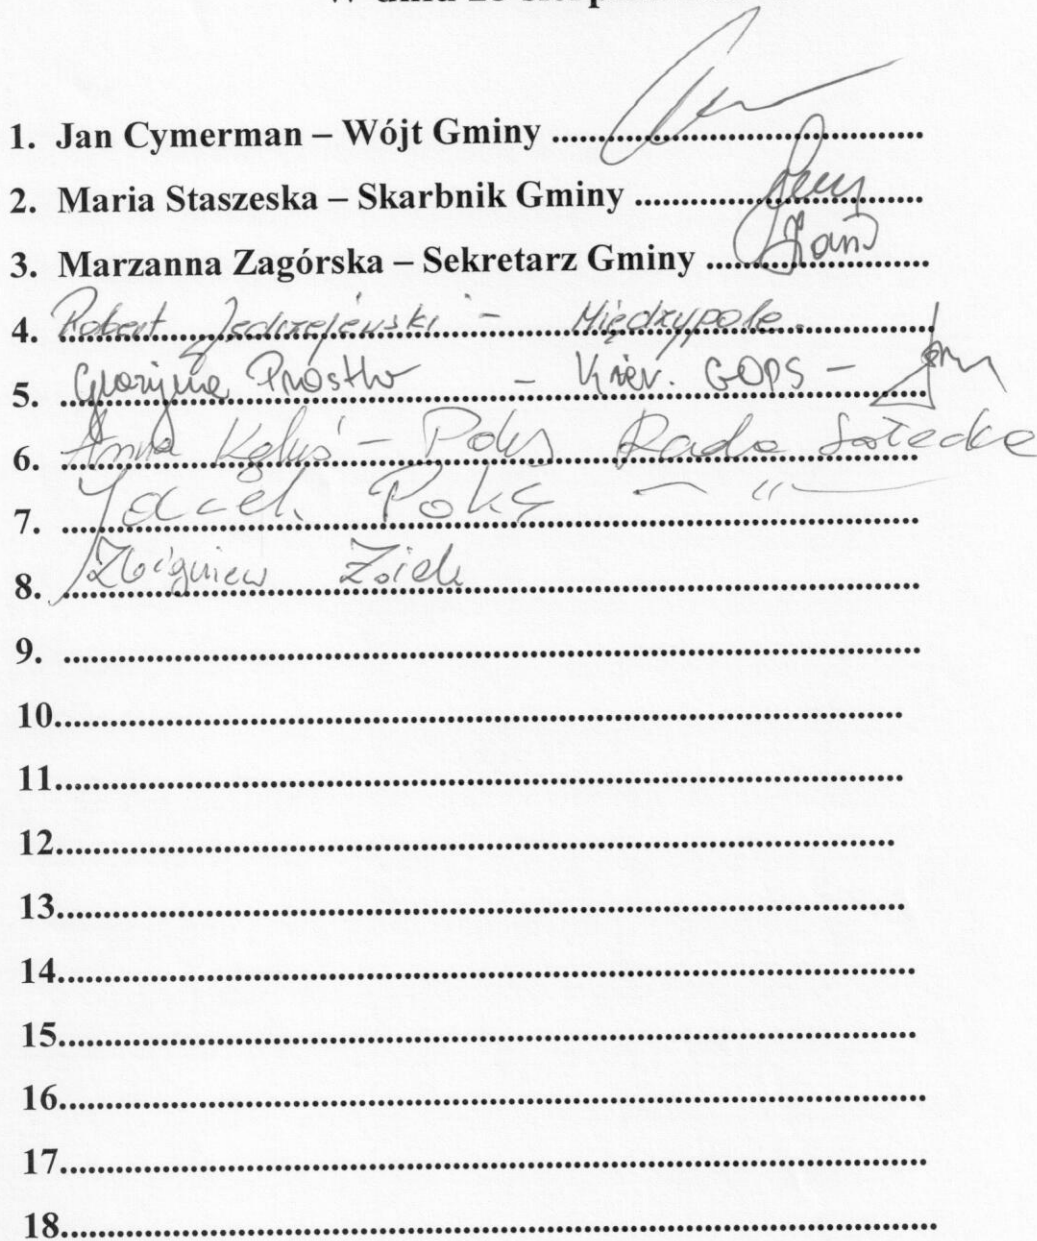 1. Jan Cymerman – Wójt Gminy
2. Maria Staszeska – Skarbnik Gminy
3. Marzanna Zagórska – Sekretarz Gminy
4. Robert Jędrzejewski - Międzypole.
5. Grażyna - Kier. GOPS -
6. Anna - Rada Sołecka
7. Jacek - " -
8. Zbigniew
9.
10.
11.
12.
13.
14.
15.
16.
17.
18.